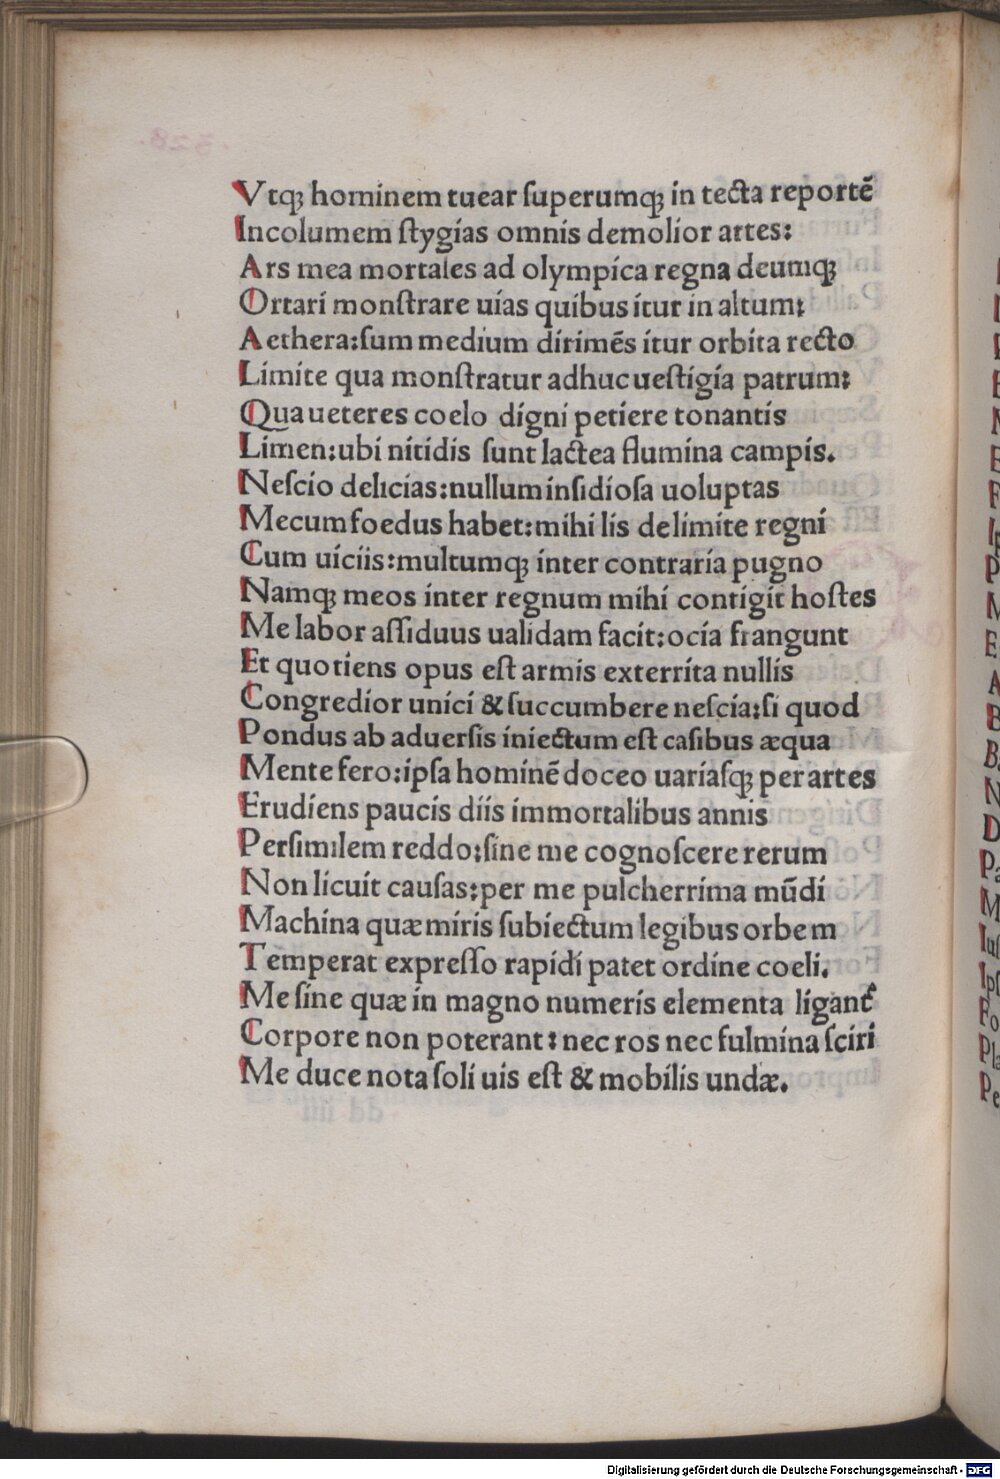 Vtqꝫ hominem tuear ſuperumqꝫ in tecta reportē
Incolumem ſtygias omnis demolior artes:
Ars mea mortales ad olympica regna deumqꝫ
Ortari monſtrare uias quibus itur in altum:
Aethera:ſum medium dirimēs itur orbita recto
Limite qua monſtratur adhuc ueſtigia patrum:
Qua ueteres coelo digni petiere tonantis
Limen:ubi nitidis ſunt lactea flumina campis.
Neſcio delicias:nullum inſidioſa uoluptas
Mecum foedus habet:mihi lis de limite regni
Cum uiciis:multumqꝫ inter contraria pugno
Namqꝫ meos inter regnum mihi contigit hoſtes
Me labor aſſiduus ualidam facit:ocia frangunt
Et quotiens opus eſt armis exterrita nullis
Congredior unici & ſuccumbere neſcia:ſi quod
Pondus ab aduerſis iniectum eſt caſibus æqua
Mente fero:ipſa hominē doceo uariaſqꝫ per artes
Erudiens paucis diis immortalibus annis
Perſimilem reddo:ſine me cognoſcere rerum
Non licuit cauſas:per me pulcherrima mūdi
Machina quæ miris ſubiectum legibus orbem
Temperat expreſſo rapidi patet ordine coeli.
Me ſine quæ in magno numeris elementa ligant
Corpore non poterant: nec ros nec fulmina ſciri
Me duce nota ſoli uis eſt & mobilis undæ.
Digitalisierung gefördert durch die Deutsche Forschungsgemeinschaft - DFG